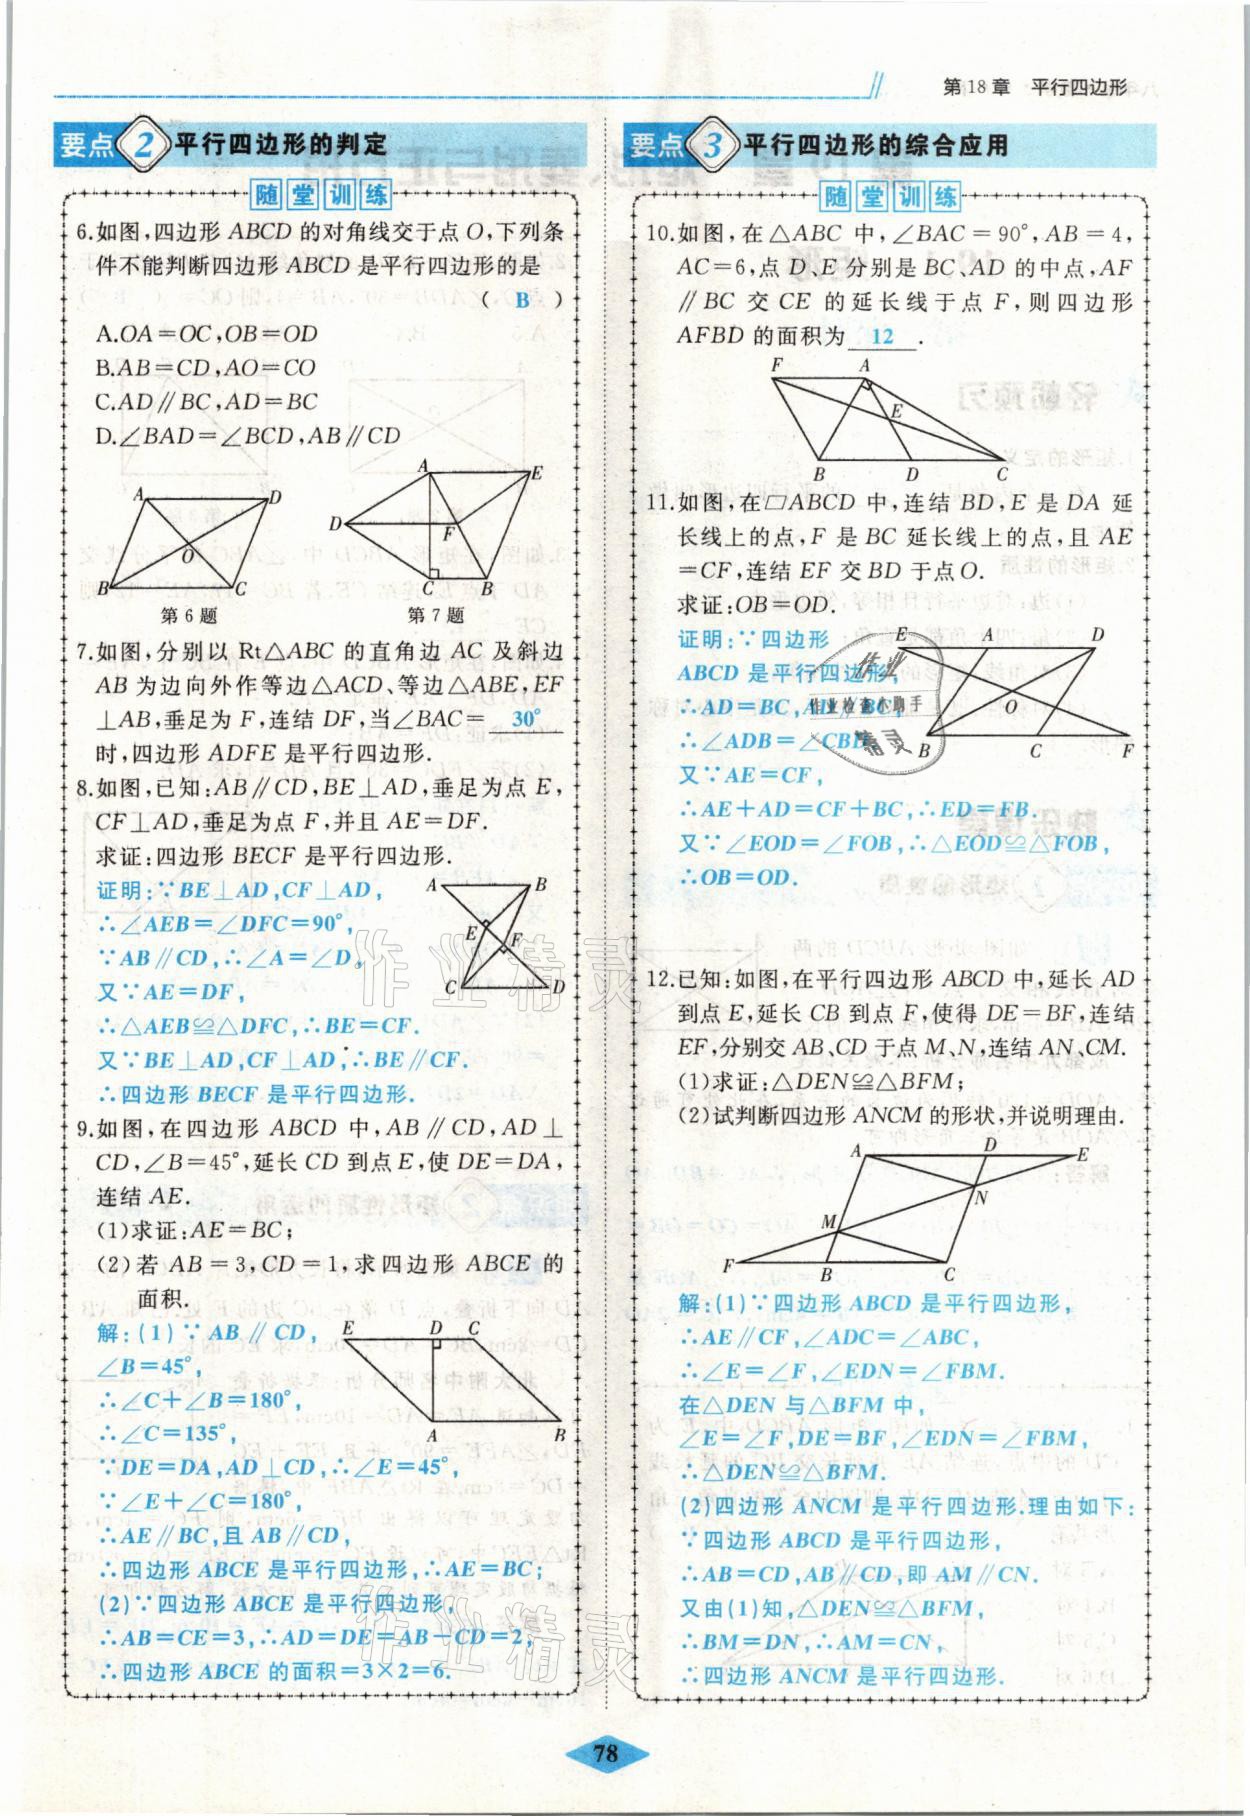 第18章 平行四边形
要点2 平行四边形的判定
随堂训练
6.如图,四边形ABCD的对角线交于点O,下列条
件不能判断四边形ABCD是平行四边形的是
( B )
A.OA=OC,OB=OD
B.AB=CD,AO=CO
C.AD∥BC,AD=BC
D.∠BAD=∠BCD,AB∥CD
A D O B C
A E D F C B
第6题 第7题
7.如图,分别以Rt△ABC的直角边AC及斜边
AB为边向外作等边△ACD、等边△ABE,EF
⊥AB,垂足为F,连结DF,当∠BAC= 30°
时,四边形ADFE是平行四边形.
8.如图,已知:AB∥CD,BE⊥AD,垂足为点E,
CF⊥AD,垂足为点F,并且AE=DF.
求证:四边形BECF是平行四边形.
证明:∵BE⊥AD,CF⊥AD,
∴∠AEB=∠DFC=90°,
∵AB∥CD,∴∠A=∠D。
又∵AE=DF,
∴△AEB≌△DFC,∴BE=CF.
又∵BE⊥AD,CF⊥AD,∴BE∥CF.
∴四边形BECF是平行四边形.
A B E F C D
9.如图,在四边形ABCD中,AB∥CD,AD⊥
CD,∠B=45°,延长CD到点E,使DE=DA,
连结AE.
(1)求证:AE=BC;
(2)若AB=3,CD=1,求四边形ABCE的
面积.
解:(1)∵AB∥CD,
∠B=45°,
∴∠C+∠B=180°,
∴∠C=135°,
∵DE=DA,AD⊥CD,∴∠E=45°,
∵∠E+∠C=180°,
∴AE∥BC,且AB∥CD,
∴四边形ABCE是平行四边形,∴AE=BC;
(2)∵四边形ABCE是平行四边形,
∴AB=CE=3,∴AD=DE=AB-CD=2,
∴四边形ABCE的面积=3×2=6.
E D C A B
要点3 平行四边形的综合应用
随堂训练
10.如图,在△ABC中,∠BAC=90°,AB=4,
AC=6,点D、E分别是BC、AD的中点,AF
∥BC交CE的延长线于点F,则四边形
AFBD的面积为 12 .
F A E B D C
11.如图,在▱ABCD中,连结BD,E是DA延
长线上的点,F是BC延长线上的点,且AE
=CF,连结EF交BD于点O.
求证:OB=OD.
证明:∵四边形
ABCD是平行四边形,
∴AD=BC,AD∥BC,
∴∠ADB=∠CBD.
又∵AE=CF,
∴AE+AD=CF+BC,∴ED=FB.
又∵∠EOD=∠FOB,∴△EOD≌△FOB,
∴OB=OD.
E A D O B C F
12.已知:如图,在平行四边形ABCD中,延长AD
到点E,延长CB到点F,使得DE=BF,连结
EF,分别交AB、CD于点M、N,连结AN、CM.
(1)求证:△DEN≌△BFM;
(2)试判断四边形ANCM的形状,并说明理由.
A D E N M F B C
解:(1)∵四边形ABCD是平行四边形,
∴AE∥CF,∠ADC=∠ABC,
∴∠E=∠F,∠EDN=∠FBM.
在△DEN与△BFM中,
∠E=∠F,DE=BF,∠EDN=∠FBM,
∴△DEN≌△BFM.
(2)四边形ANCM是平行四边形.理由如下:
∵四边形ABCD是平行四边形,
∴AB=CD,AB∥CD,即AM∥CN.
又由(1)知,△DEN≌△BFM,
∴BM=DN,∴AM=CN,
∴四边形ANCM是平行四边形.
作业
作业检查小助手
精灵
作业精灵
作业精灵
78